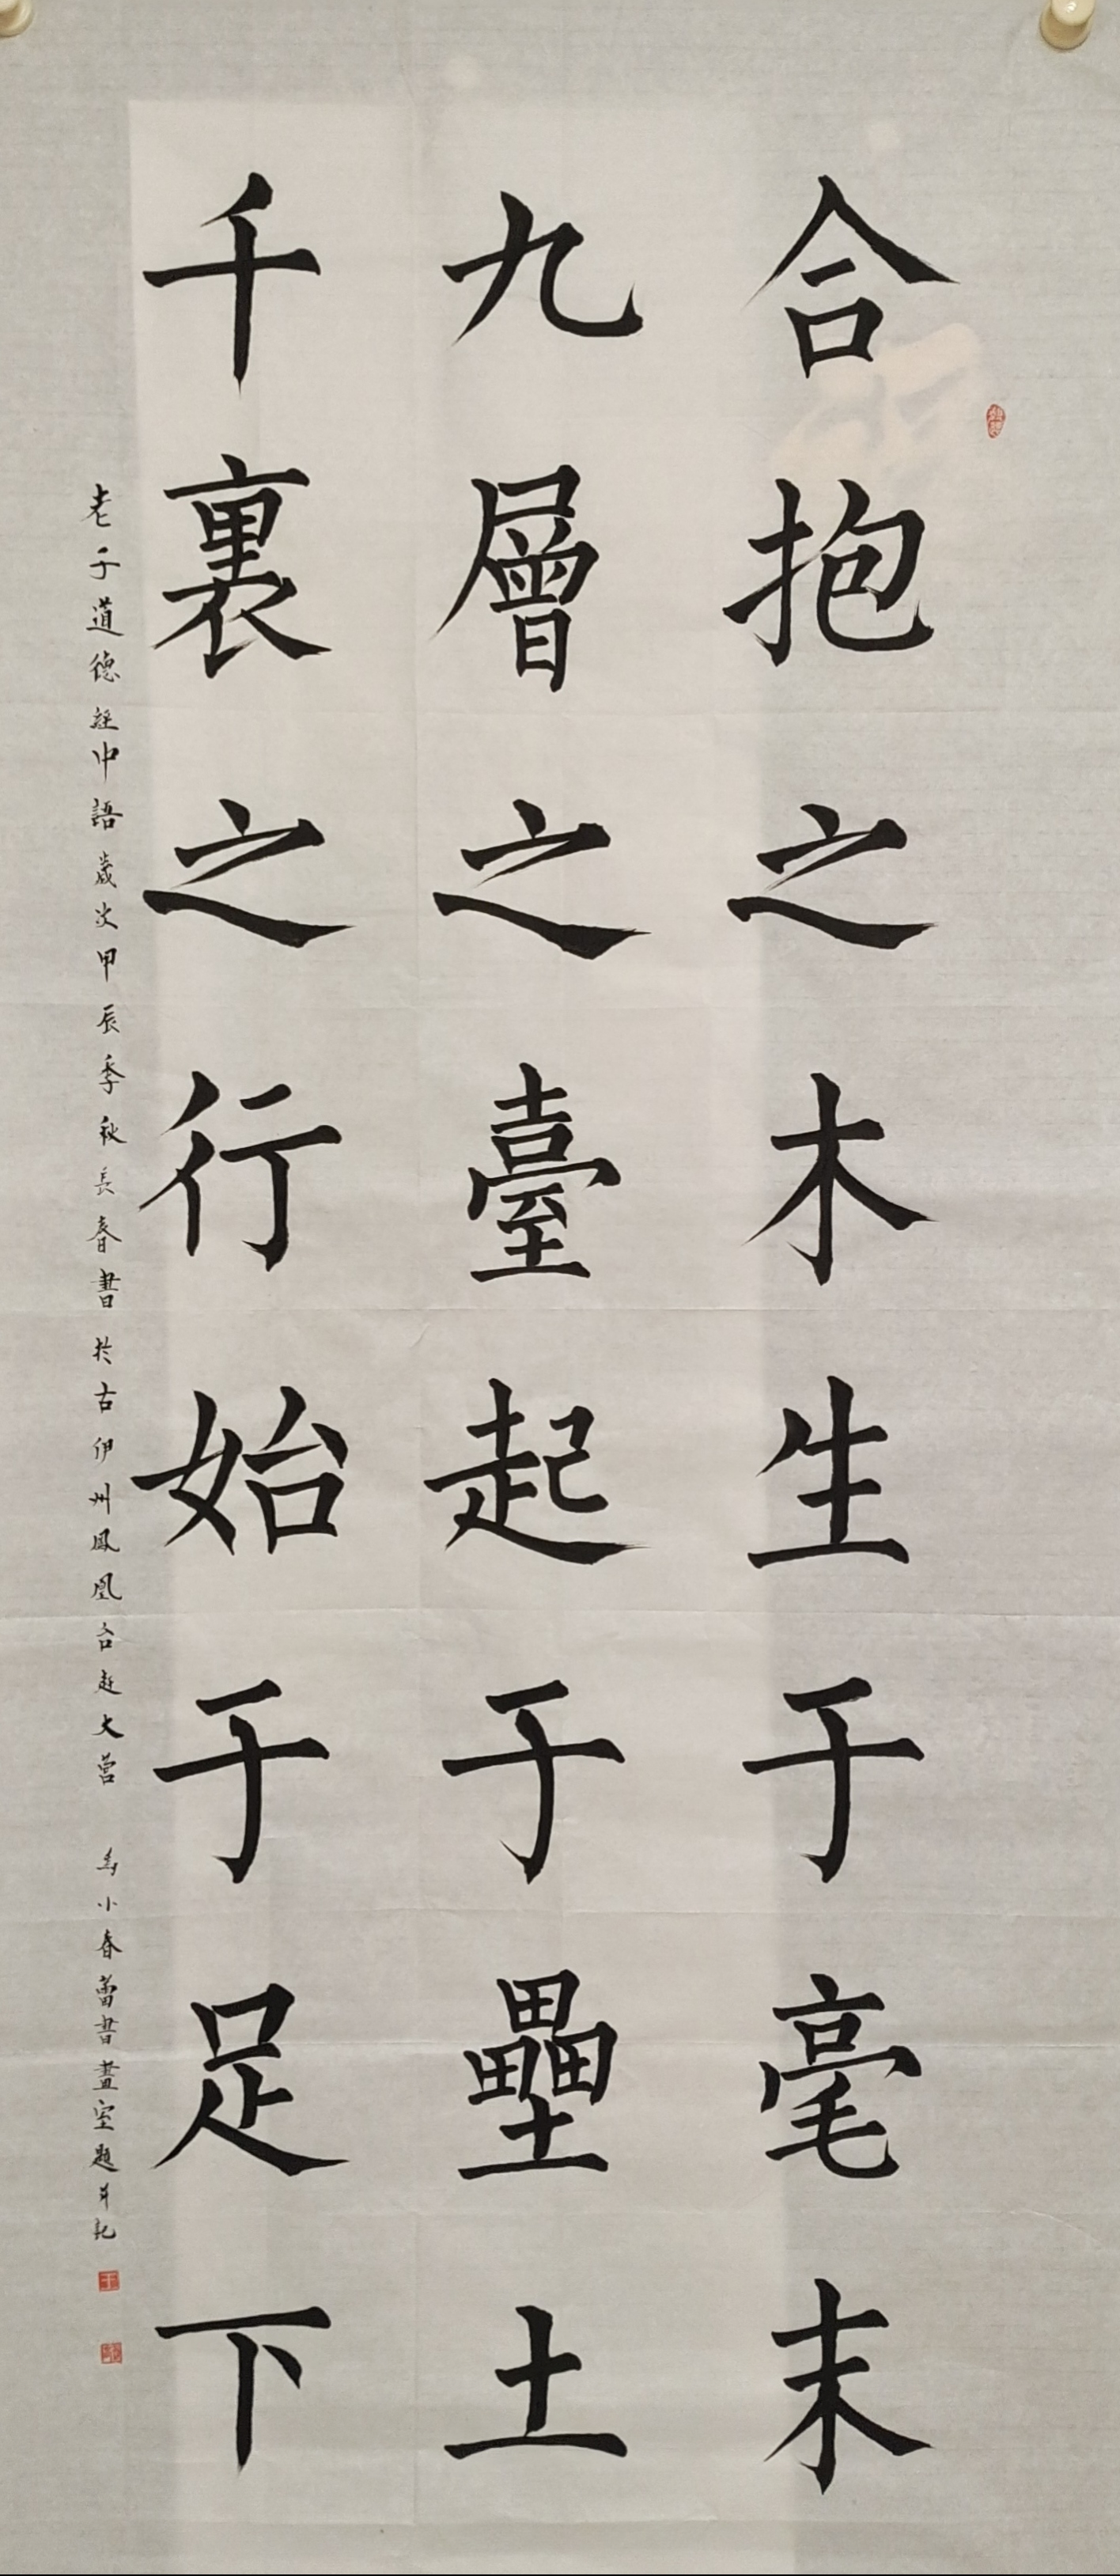 合抱之木生于毫末
九層之臺起于壘土
千裏之行始于足下
老子道德經中語歲次甲辰季秋長春書於古伊州鳳凰台赶大营 小春蕾書畫室題并記